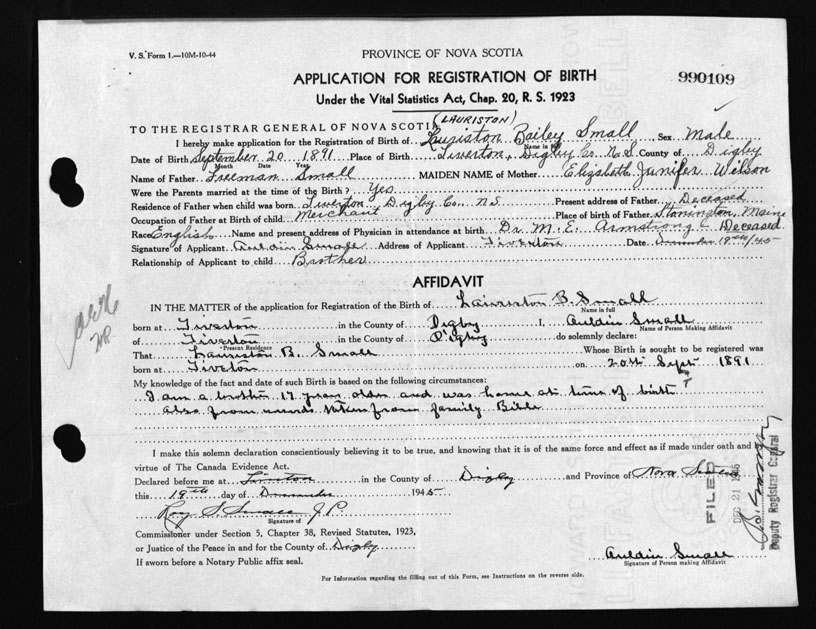 V. S. Form 1.—10M-10-44
PROVINCE OF NOVA SCOTIA
APPLICATION FOR REGISTRATION OF BIRTH
990109
Under the Vital Statistics Act, Chap. 20, R. S. 1923
(LAURISTON)
TO THE REGISTRAR GENERAL OF NOVA SCOTIA
I hereby make application for the Registration of Birth of Bailey Small, Sex Male
Name in full
Date of Birth September 20 1891 Place of Birth Tiverton, Digby Co. N.S County of Digby
Month Date Year
Name of Father Freeman Small MAIDEN NAME of Mother Elizabeth Junifer Wilson
Were the Parents married at the time of the Birth? Yes
Residence of Father when child was born Tiverton Digby Co NS Present address of Father Deceased
Occupation of Father at Birth of child Merchant Place of birth of Father Stonington, Maine
Race English Name and present address of Physician in attendance at birth Dr. M. E. Armstrong Deceased
Signature of Applicant Auldin Small Address of Applicant Tiverton Date December 19th/45
Relationship of Applicant to child Brother
AFFIDAVIT
IN THE MATTER of the application for Registration of the Birth of Lauriston B. Small
Name in full
born at Tiverton in the County of Digby I, Auldin Small
Name of Person Making Affidavit
of Tiverton in the County of Digby do solemnly declare:
Present Residence
That Lauriston B. Small Whose Birth is sought to be registered was
born at Tiverton on 20th Sept 1891
My knowledge of the fact and date of such Birth is based on the following circumstances:
I am a brother 17 years older and was home at time of birth
Also from records taken from family Bible
I make this solemn declaration conscientiously believing it to be true, and knowing that it is of the same force and effect as if made under oath and by
virtue of The Canada Evidence Act.
Declared before me at Tiverton in the County of Digby and Province of Nova Scotia
this 19th day of December 1945
Roy S. Small J.P.
Signature of
Commissioner under Section 5, Chapter 38, Revised Statutes, 1923,
or Justice of the Peace in and for the County of Digby
If sworn before a Notary Public affix seal.
Auldin Small
Signature of Person making Affidavit
FILED
DEC 21 1945
Deputy Registrar General
For Information regarding the filling out of this Form, see Instructions on the reverse side.